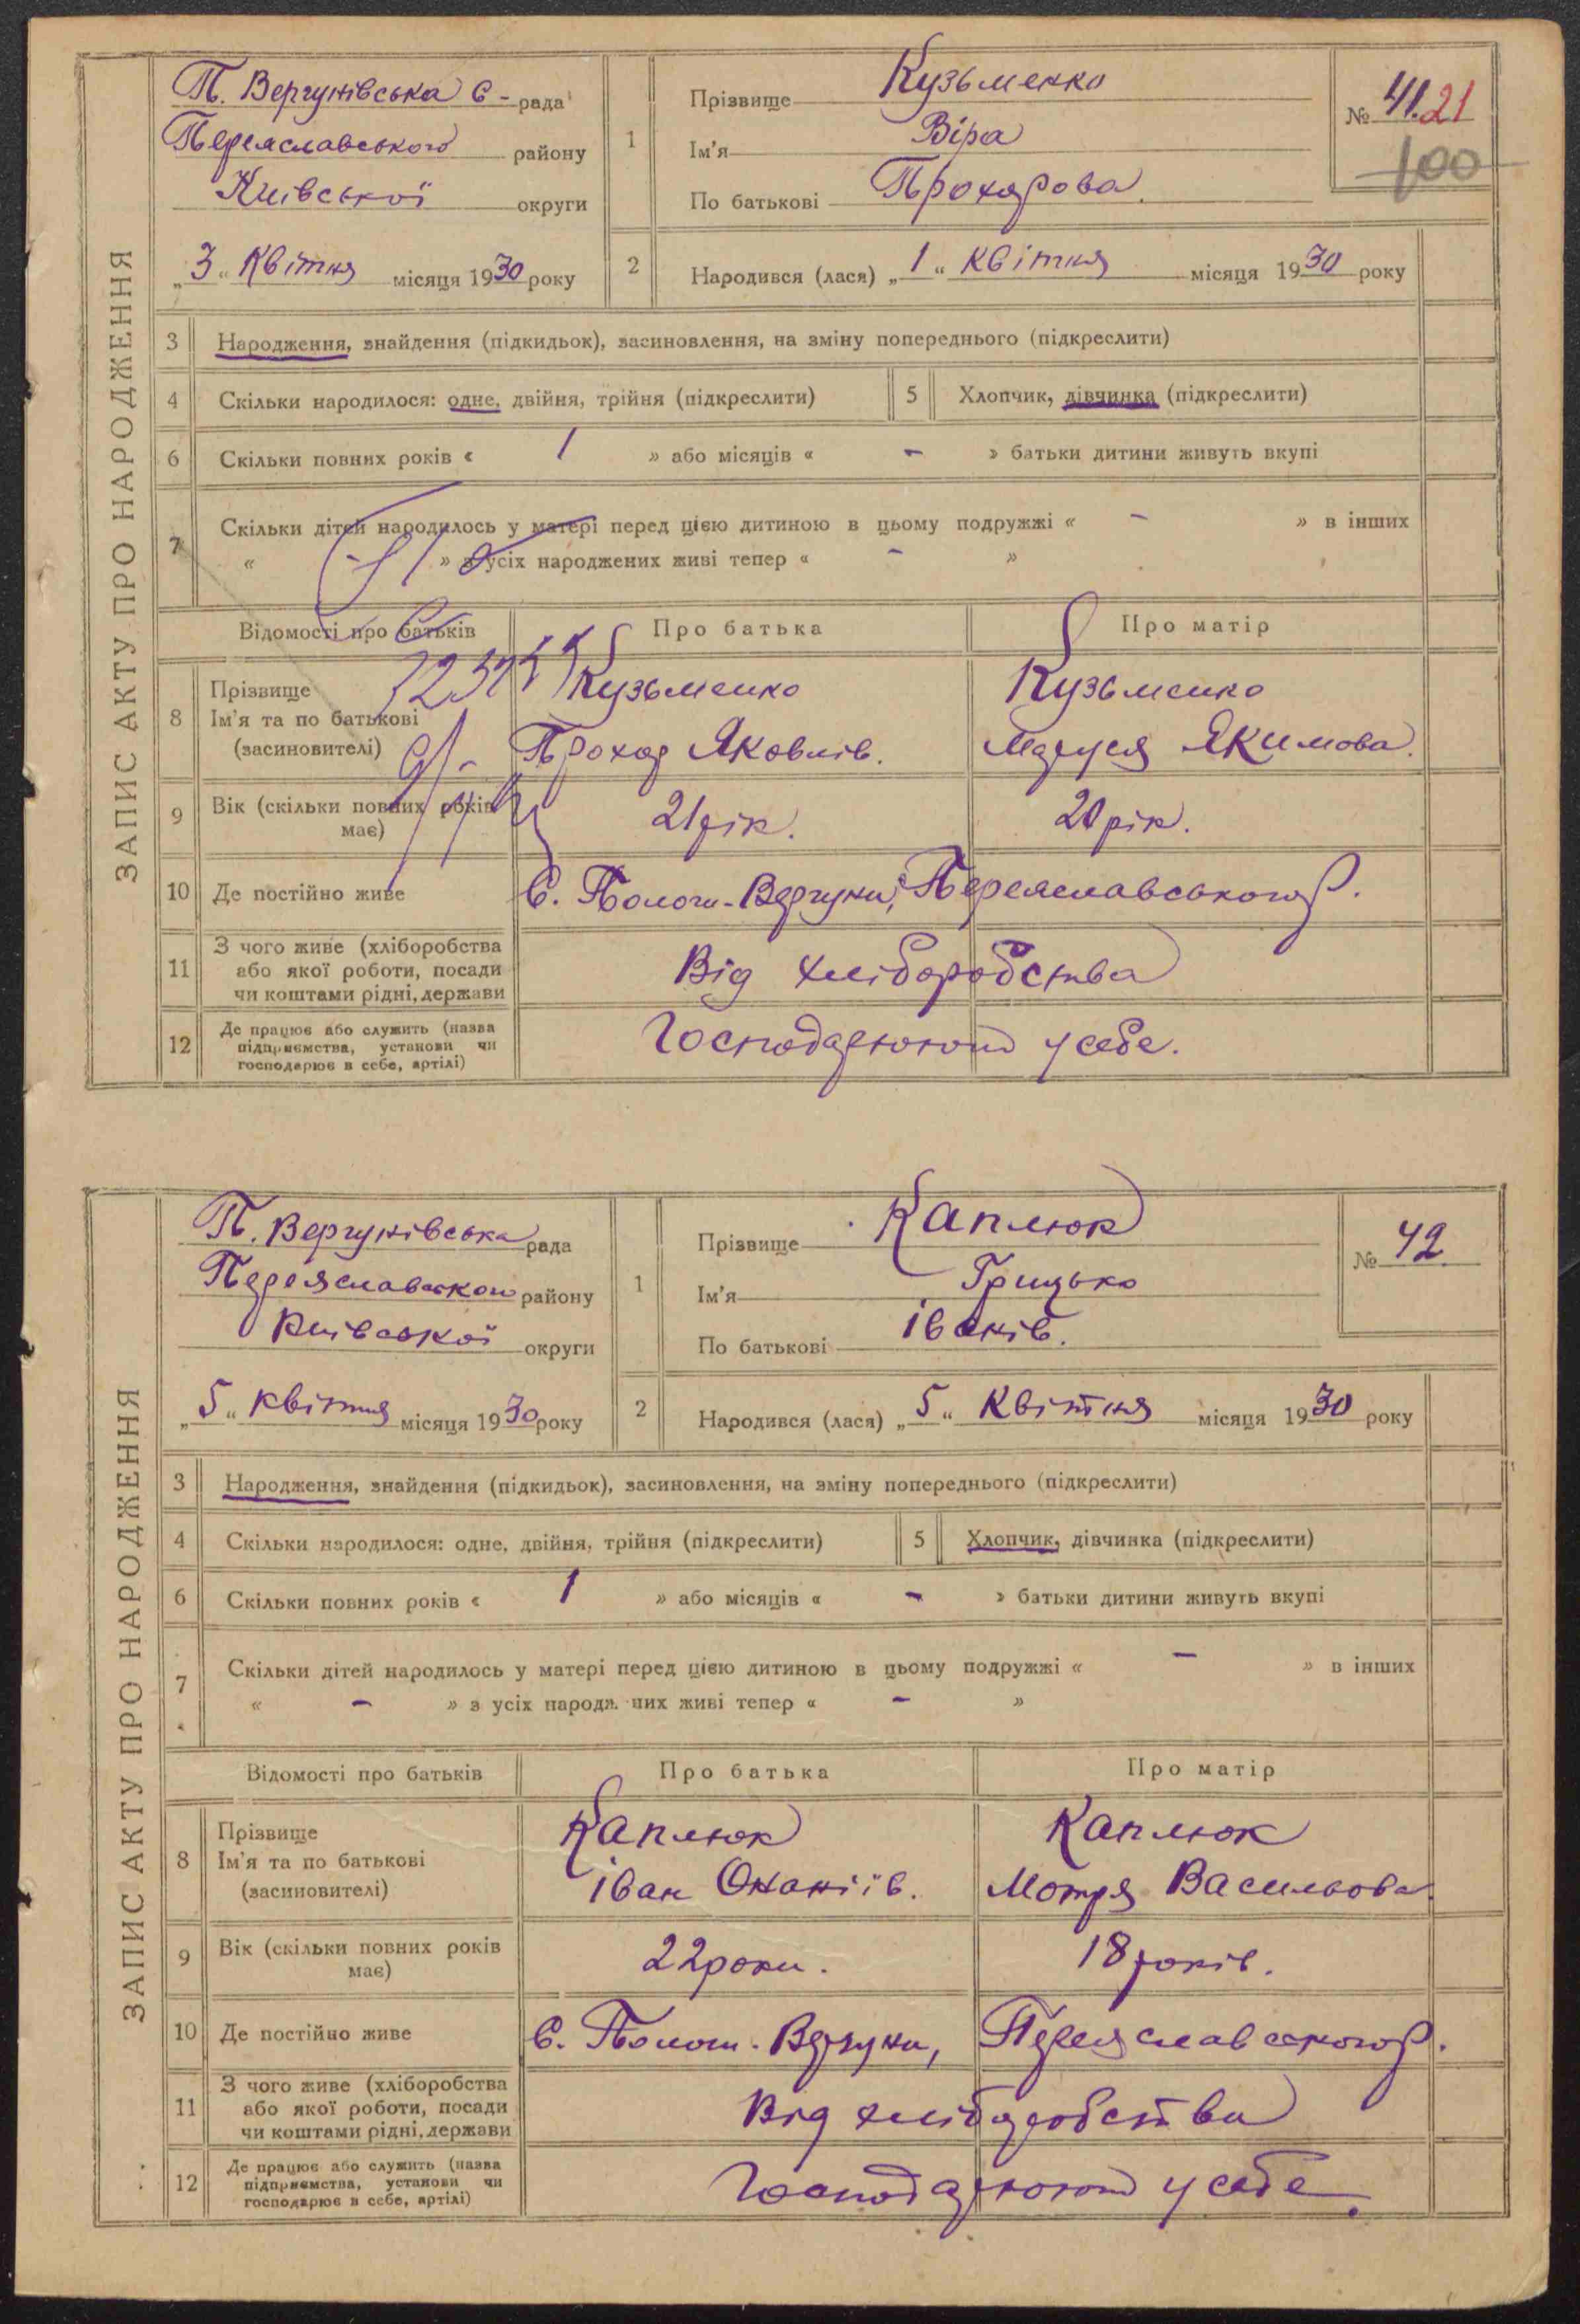 ЗАПИС АКТУ ПРО НАРОДЖЕННЯ
П. Вергунівська С - рада
Переяславського району
Київської округи
„3“ Квітня місяця 1930 року
1 Прізвище Кузьменко
Ім'я Віра
По батькові Прохорова.
№ 41. 21
100
2 Народився (лася) „1“ Квітня місяця 1930 року
3 Народження, знайдення (підкидьок), засиновлення, на зміну попереднього (підкреслити)
4 Скільки народилося: одне, двійня, трійня (підкреслити) 5 Хлопчик, дівчинка (підкреслити)
6 Скільки повних років « 1 » або місяців « - » батьки дитини живуть вкупі
7 Скільки дітей народилось у матері перед цією дитиною в цьому подружжі « - » в інших
« - » з усіх народжених живі тепер « - »
Відомості про батьків Про батька Про матір
8 Прізвище Кузьменко Кузьменко
Ім'я та по батькові
(засиновителі) Прохор Яковлів. Маруся Якимова.
9 Вік (скільки повних років
має) 21 рік. 20 рік.
10 Де постійно живе С. Полог.-Вергуни, Переяславського р.
11 З чого живе (хліборобства
або якої роботи, посади
чи коштами рідні, держави Від хліборобства
12 Де працює або служить (назва
підприємства, установи чи
господарює в себе, артілі) Господарюють у себе.
ЗАПИС АКТУ ПРО НАРОДЖЕННЯ
П. Вергунівська рада
Переяславського району
Київської округи
„5“ квітня місяця 1930 року
1 Прізвище Каплюк
Ім'я Грицько
По батькові Іванів.
№ 42
2 Народився (лася) „5“ Квітня місяця 1930 року
3 Народження, знайдення (підкидьок), засиновлення, на зміну попереднього (підкреслити)
4 Скільки народилося: одне, двійня, трійня (підкреслити) 5 Хлопчик, дівчинка (підкреслити)
6 Скільки повних років « 1 » або місяців « - » батьки дитини живуть вкупі
7 Скільки дітей народилось у матері перед цією дитиною в цьому подружжі « - » в інших
« - » з усіх народж них живі тепер « - »
Відомості про батьків Про батька Про матір
8 Прізвище Каплюк Каплюк
Ім'я та по батькові
(засиновителі) Іван Онаніїв. Мотря Васильова
9 Вік (скільки повних років
має) 22 роки. 18 років.
10 Де постійно живе С. Полог.-Вергуни, Переяславського р.
11 З чого живе (хліборобства
або якої роботи, посади
чи коштами рідні, держави Від хліборобства
12 Де працює або служить (назва
підприємства, установи чи
господарює в себе, артілі) Господарюють у себе.